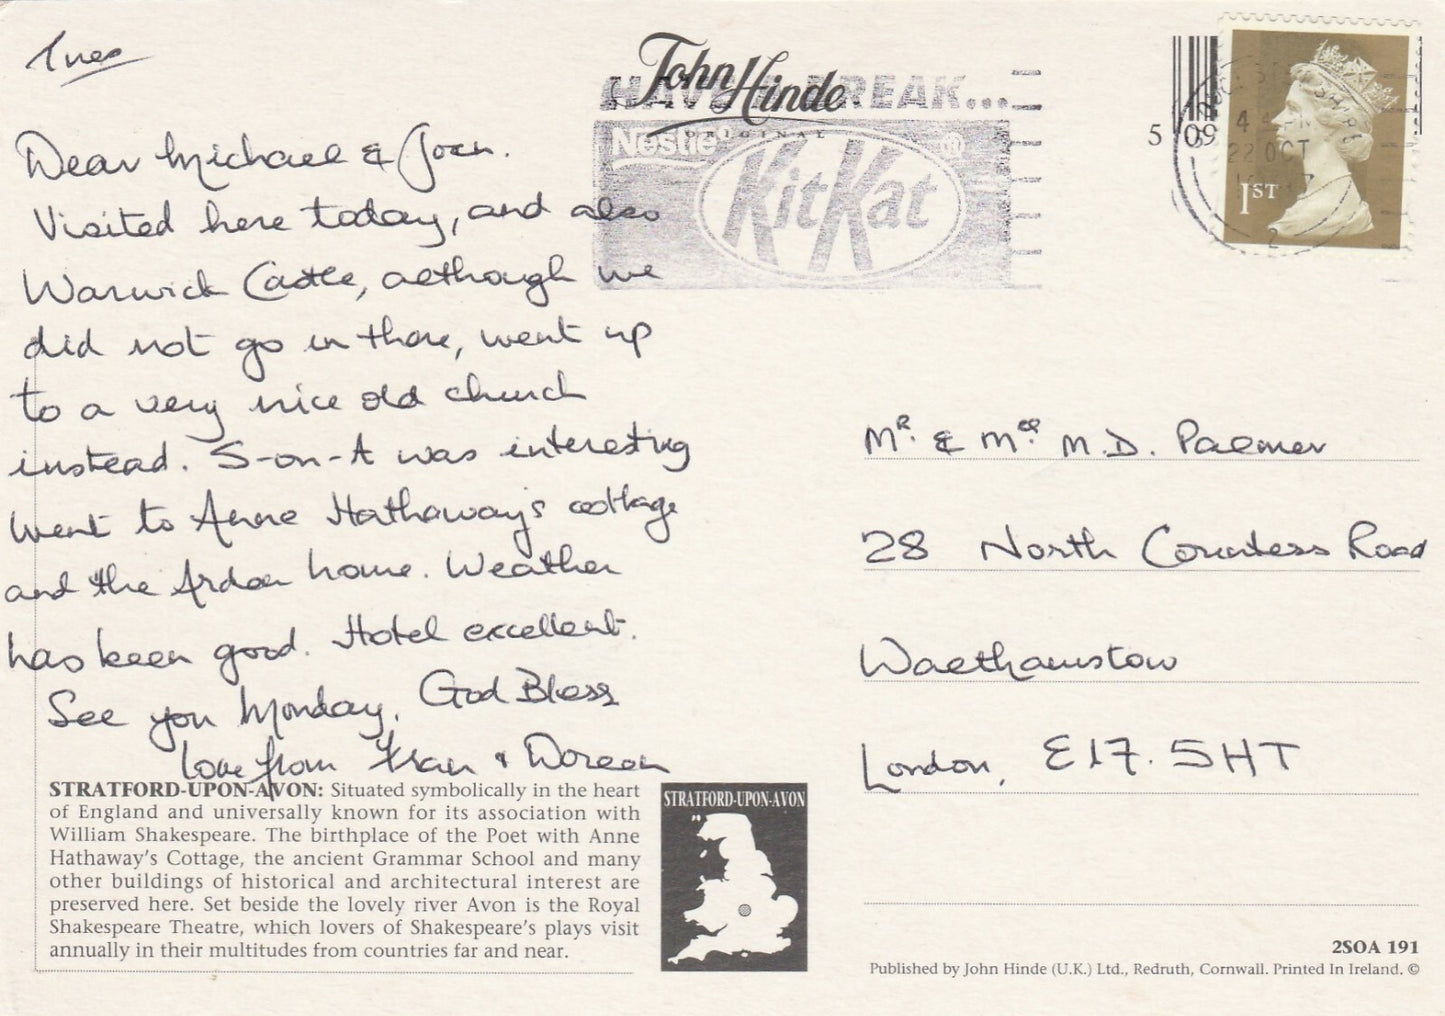 Tues
Dear Michael & Joan.
Visited here today, and also
Warwick Castle, although we
did not go in there, went up
to a very nice old church
instead. S-on-A was interesting
Went to Anne Hathaway's cottage
and the Arden home. Weather
has been good. Hotel excellent.
See you Monday. God Bless
Love from Fran & Doreen
STRATFORD-UPON-AVON: Situated symbolically in the heart
of England and universally known for its association with
William Shakespeare. The birthplace of the Poet with Anne
Hathaway's Cottage, the ancient Grammar School and many
other buildings of historical and architectural interest are
preserved here. Set beside the lovely river Avon is the Royal
Shakespeare Theatre, which lovers of Shakespeare's plays visit
annually in their multitudes from countries far and near.
STRATFORD-UPON-AVON
John Hinde
ORIGINAL
HAVE A BREAK...
Nestlé
KitKat
5 09
22 OCT
2
1ST
Mr. & Mrs. M.D. Palmer
28 North Countess Road
Walthamstow
London, E17. 5HT
2SOA 191
Published by John Hinde (U.K.) Ltd., Redruth, Cornwall. Printed In Ireland. ©